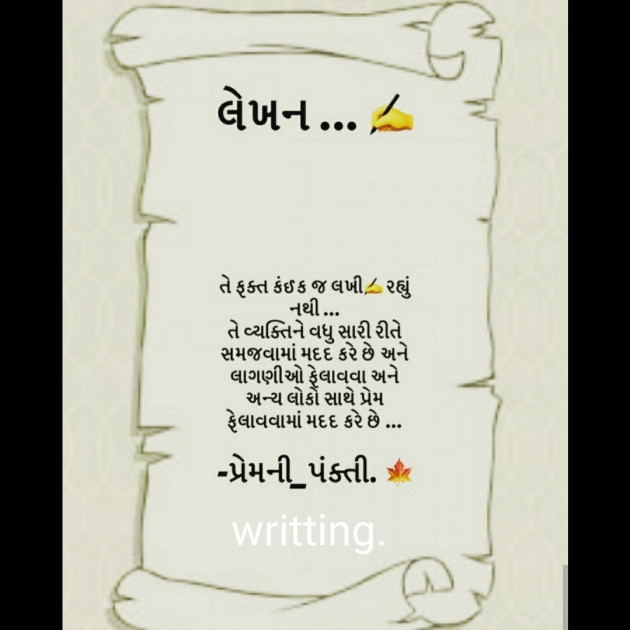 લેખન ... ✍️
તે ફક્ત કંઈક જ લખી✍️ રહ્યું
નથી ...
તે વ્યક્તિને વધુ સારી રીતે
સમજવામાં મદદ કરે છે અને
લાગણીઓ ફેલાવવા અને
અન્ય લોકો સાથે પ્રેમ
ફેલાવવામાં મદદ કરે છે ...
-પ્રેમની_પંક્તી. 🍁
writting.